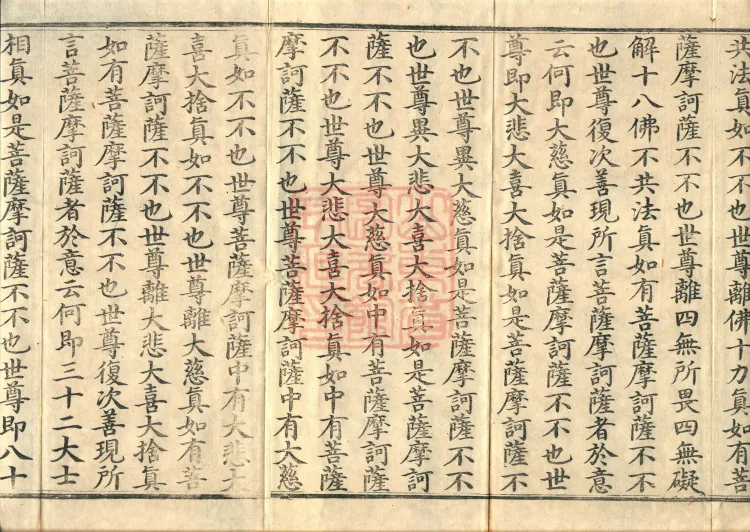 共法真如不不也世尊離佛十力真如有菩
薩摩訶薩不不也世尊離四無所畏四無礙
解十八佛不共法真如有菩薩摩訶薩不不
也世尊復次善現所言菩薩摩訶薩者於意
云何即大慈真如是菩薩摩訶薩不不也世
尊即大悲大喜大捨真如是菩薩摩訶薩不
不也世尊異大慈真如是菩薩摩訶薩不不
也世尊異大悲大喜大捨真如是菩薩摩訶
薩不不也世尊大慈真如中有菩薩摩訶薩
不不也世尊大悲大喜大捨真如中有菩薩
摩訶薩不不也世尊菩薩摩訶薩中有大慈
真如不不也世尊菩薩摩訶薩中有大悲大
喜大捨真如不不也世尊離大慈真如有菩
薩摩訶薩不不也世尊離大悲大喜大捨真
如有菩薩摩訶薩不不也世尊復次善現所
言菩薩摩訶薩者於意云何即三十二大士
相真如是菩薩摩訶薩不不也世尊即八十